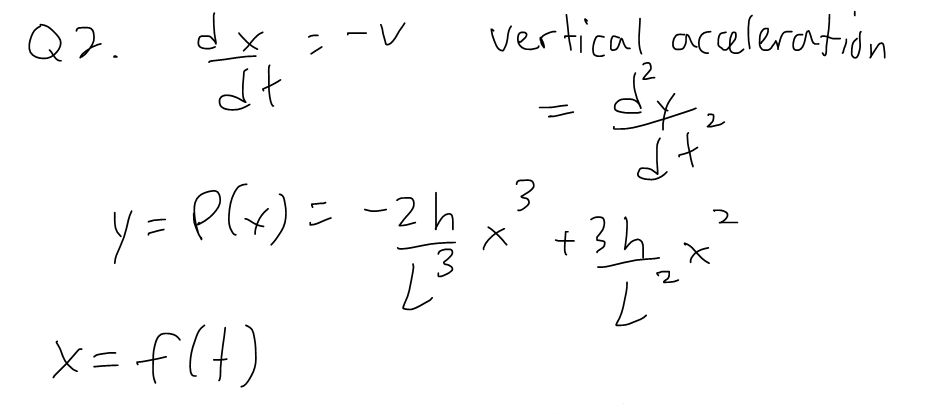 Q2. dx/dt = -v vertical acceleration
= d²y/dt²
y = P(x) = -2h/L³ x³ + 3h/L² x²
x = f(t)